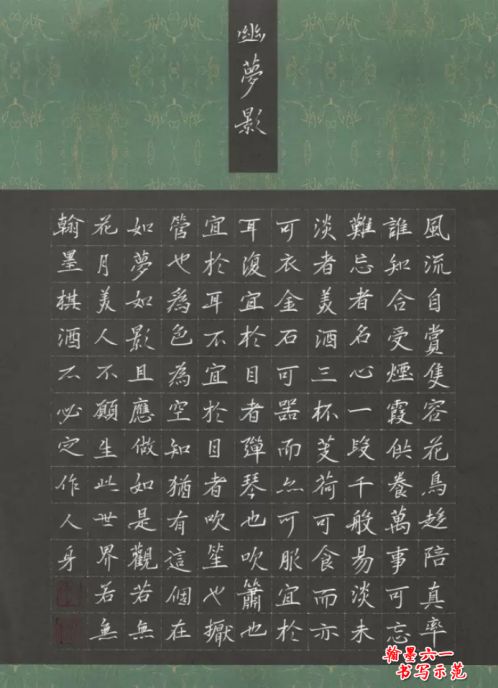 幽夢影
風流自賞隻容花鳥趍陪真率
誰知合受煙霞供養萬事可忘
難忘者名心一段千般易淡未
淡者美酒三杯芰荷可食而亦
可衣金石可器而亦可服宜於
耳復宜於目者彈琴也吹簫也
宜於耳不宜於目者吹笙也擫
管也為色為空知猶有這個在
如夢如影且應做如是觀若無
花月美人不願生此世界若無
翰墨棋酒不必定作人身
翰墨六一
书写示范